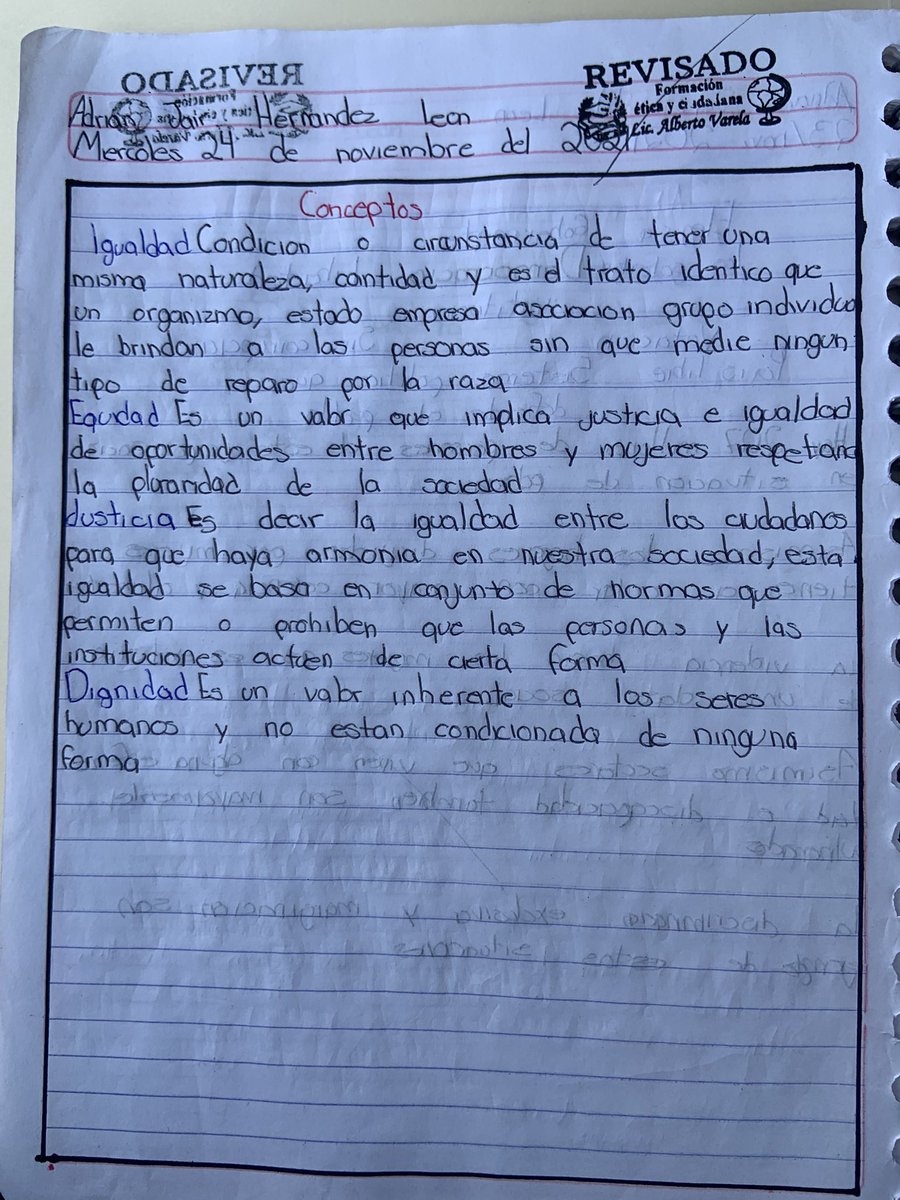 REVISADO
Formación
ética y ciudadana
Lic. Alberto Varela
Adrian Hernandez Leon
Mercoles 24 de noviembre del 2021
Conceptos
Igualdad Condicion o circunstancia de tener una
misma naturaleza, cantidad y es el trato identico que
un organizmo, estado empresa asociacion grupo individuo
le brindan a las personas sin que medie ningun
tipo de reparo por la raza
Equidad Es un valor que implica justicia e igualdad
de oportunidades entre hombres y mujeres respetando
la pluraridad de la sociedad
Justicia Es decir la igualdad entre los ciudadanos
para que haya armonia en nuestra sociedad, esta
igualdad se basa en conjunto de normas que
permiten o prohiben que las personas y las
instituciones actuen de cierta forma
Dignidad Es un valor inherente a los seres
humanos y no estan condicionada de ninguna
forma